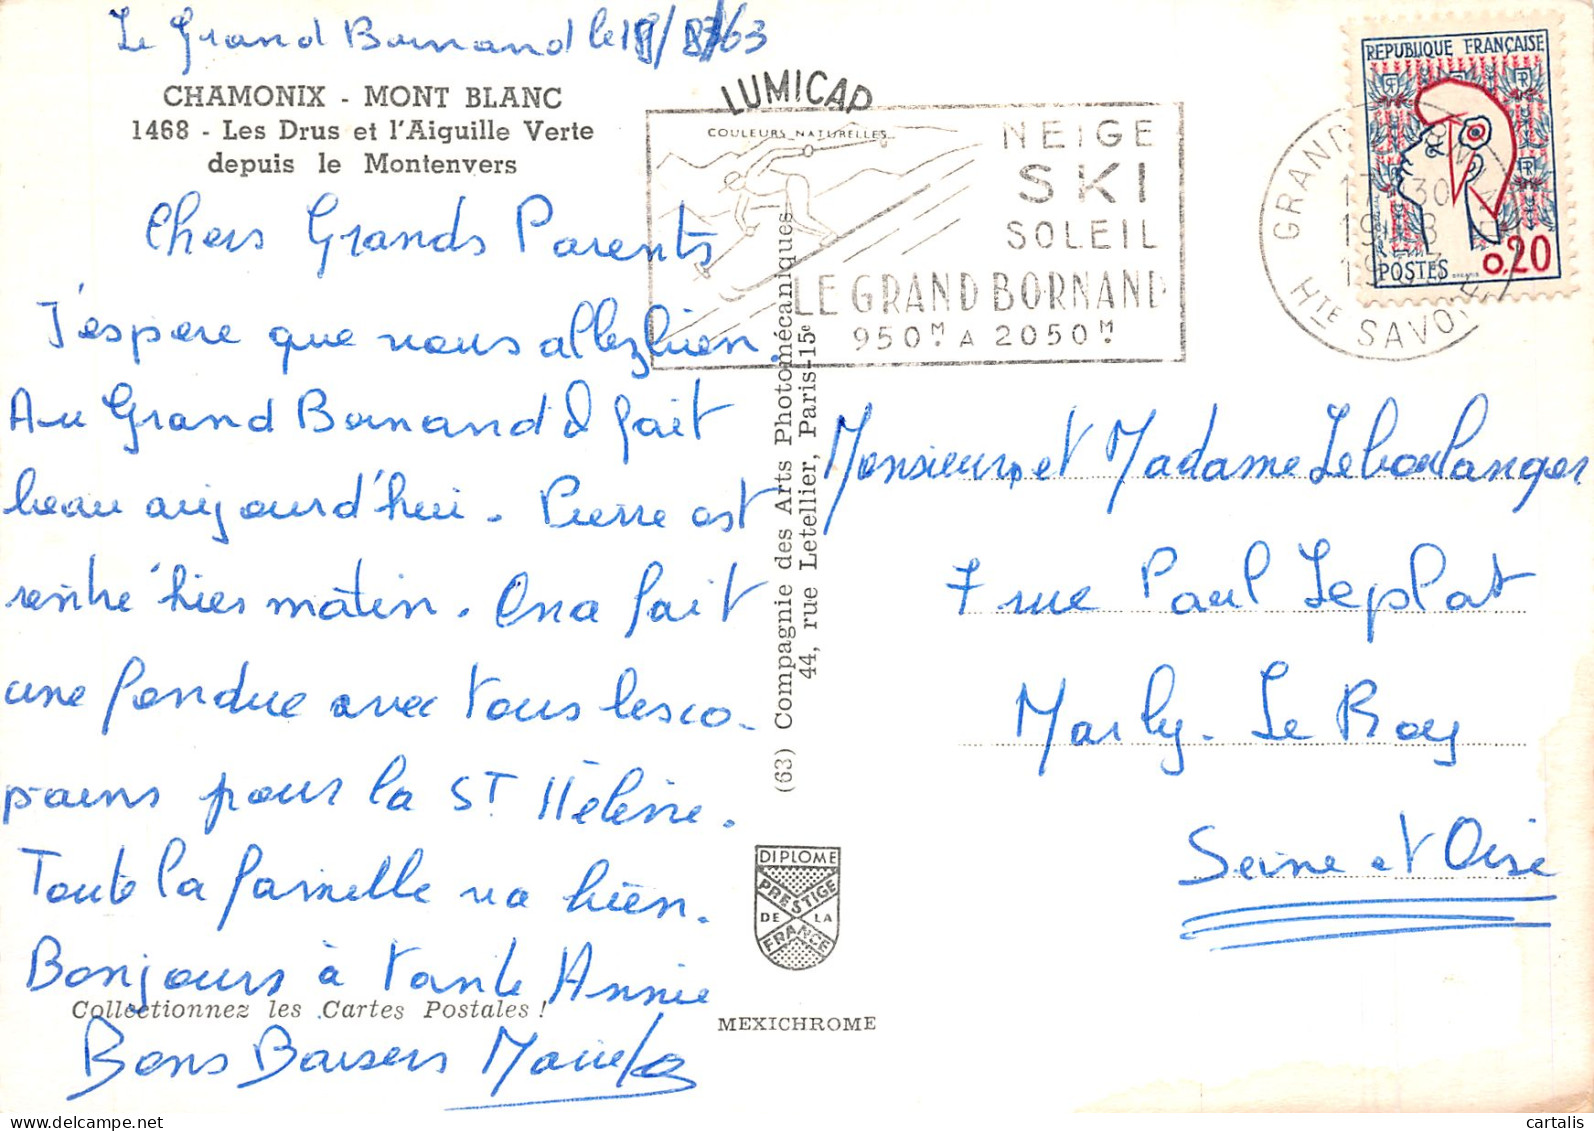 Le Grand Bornand le 18/8/63
CHAMONIX - MONT BLANC
1468 - Les Drus et l'Aiguille Verte
depuis le Montenvers
Chers Grands Parents
J'espere que vous allez bien.
Au Grand Bornand il fait
beau aujourd'hui. Pierre est
rentré hier matin. On a fait
une fondue avec tous les co-
pains pour la St Hélène.
Toute la famille va bien.
Bonjours à tante Annie
Collectionnez les Cartes Postales !
Bons Baisers
LUMICAP
COULEURS NATURELLES
NEIGE
SKI
SOLEIL
LE GRAND BORNAND
950M A 2050M
GRAND
17 30
19 - 8
Hte SAVOIE
REPUBLIQUE FRANÇAISE
POSTES
0,20
(63) Compagnie des Arts Photomécaniques
44, rue Letellier, Paris-15e
Monsieur et Madame Leboulanger
7 rue Paul Leplat
Marly - Le Roy
Seine et Oise
DIPLOME
PRESTIGE
DE LA
FRANCE
MEXICHROME
cartalis
cartalis.com